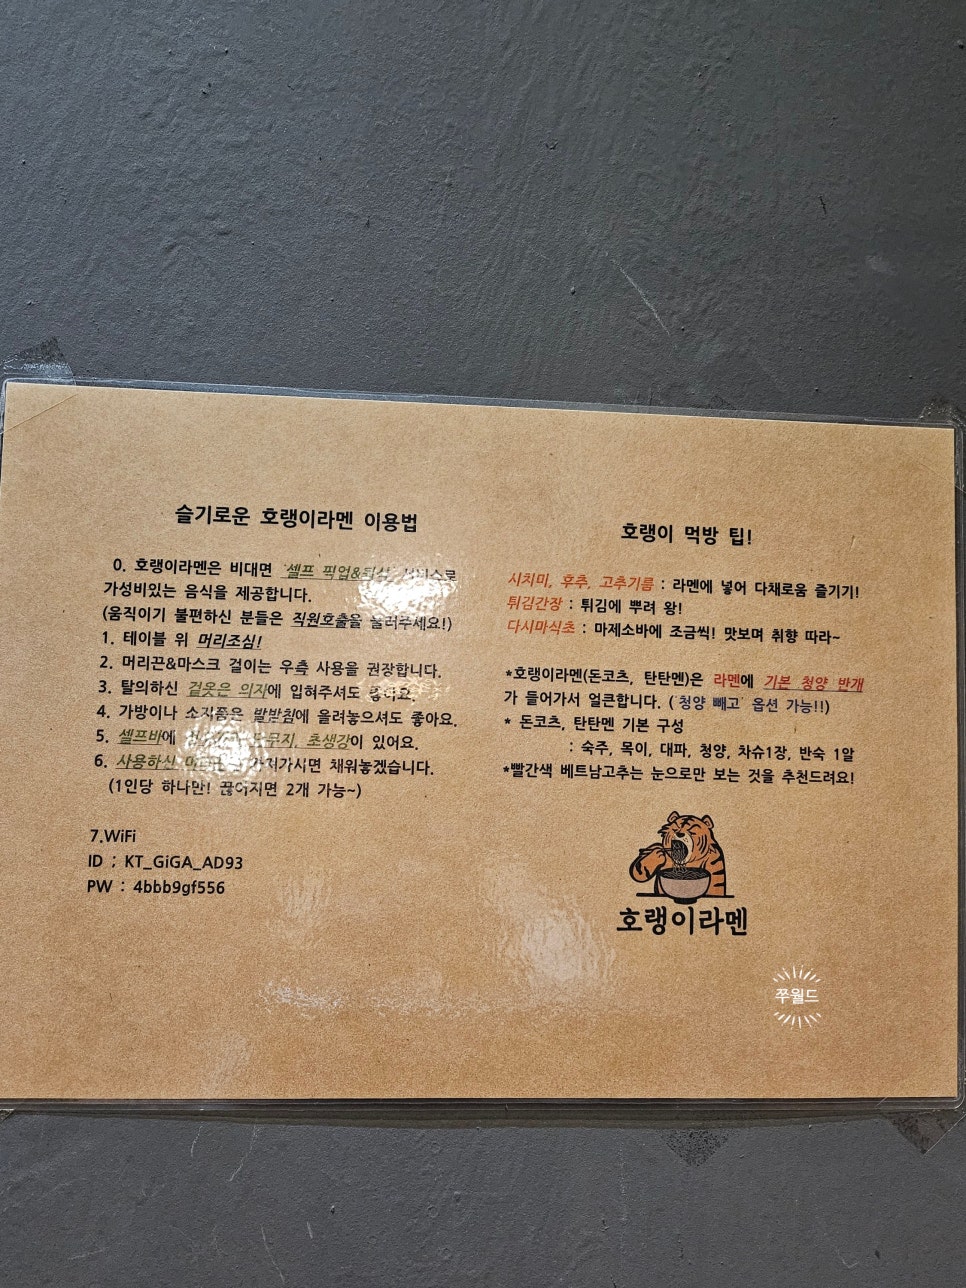 슬기로운 호랭이라멘 이용법
0. 호랭이라멘은 비대면 셀프 픽업&
가성비있는 음식을 제공합니다.
(움직이기 불편하신 분들은 직원호출을 눌러주세요!)
1. 테이블 위 머리조심!
2. 머리끈&마스크 걸이는 우측 사용을 권장합니다.
3. 탈의하신 겉옷은 의자에 입혀주셔도 좋아요.
4. 가방이나 소지품은 발받침에 올려놓으셔도 좋아요.
5. 셀프바에 단무지, 초생강이 있어요.
6. 사용하신 가져가시면 채워놓겠습니다.
(1인당 하나만! 끊어지면 2개 가능~)
7.WiFi
ID ; KT_GiGA_AD93
PW : 4bbb9gf556
호랭이 먹방 팁!
시치미, 후추, 고추기름 : 라멘에 넣어 다채로움 즐기기!
튀김간장 : 튀김에 뿌려 왕!
다시마식초 : 마제소바에 조금씩! 맛보며 취향 따라~
*호랭이라멘(돈코츠, 탄탄멘)은 라멘에 기본 청양 반개
가 들어가서 얼큰합니다. ( '청양 빼고' 옵션 가능!!)
* 돈코츠, 탄탄멘 기본 구성
: 숙주, 목이, 대파, 청양, 차슈1장, 반숙 1알
*빨간색 베트남고추는 눈으로만 보는 것을 추천드려요!
호랭이라멘
쭈월드